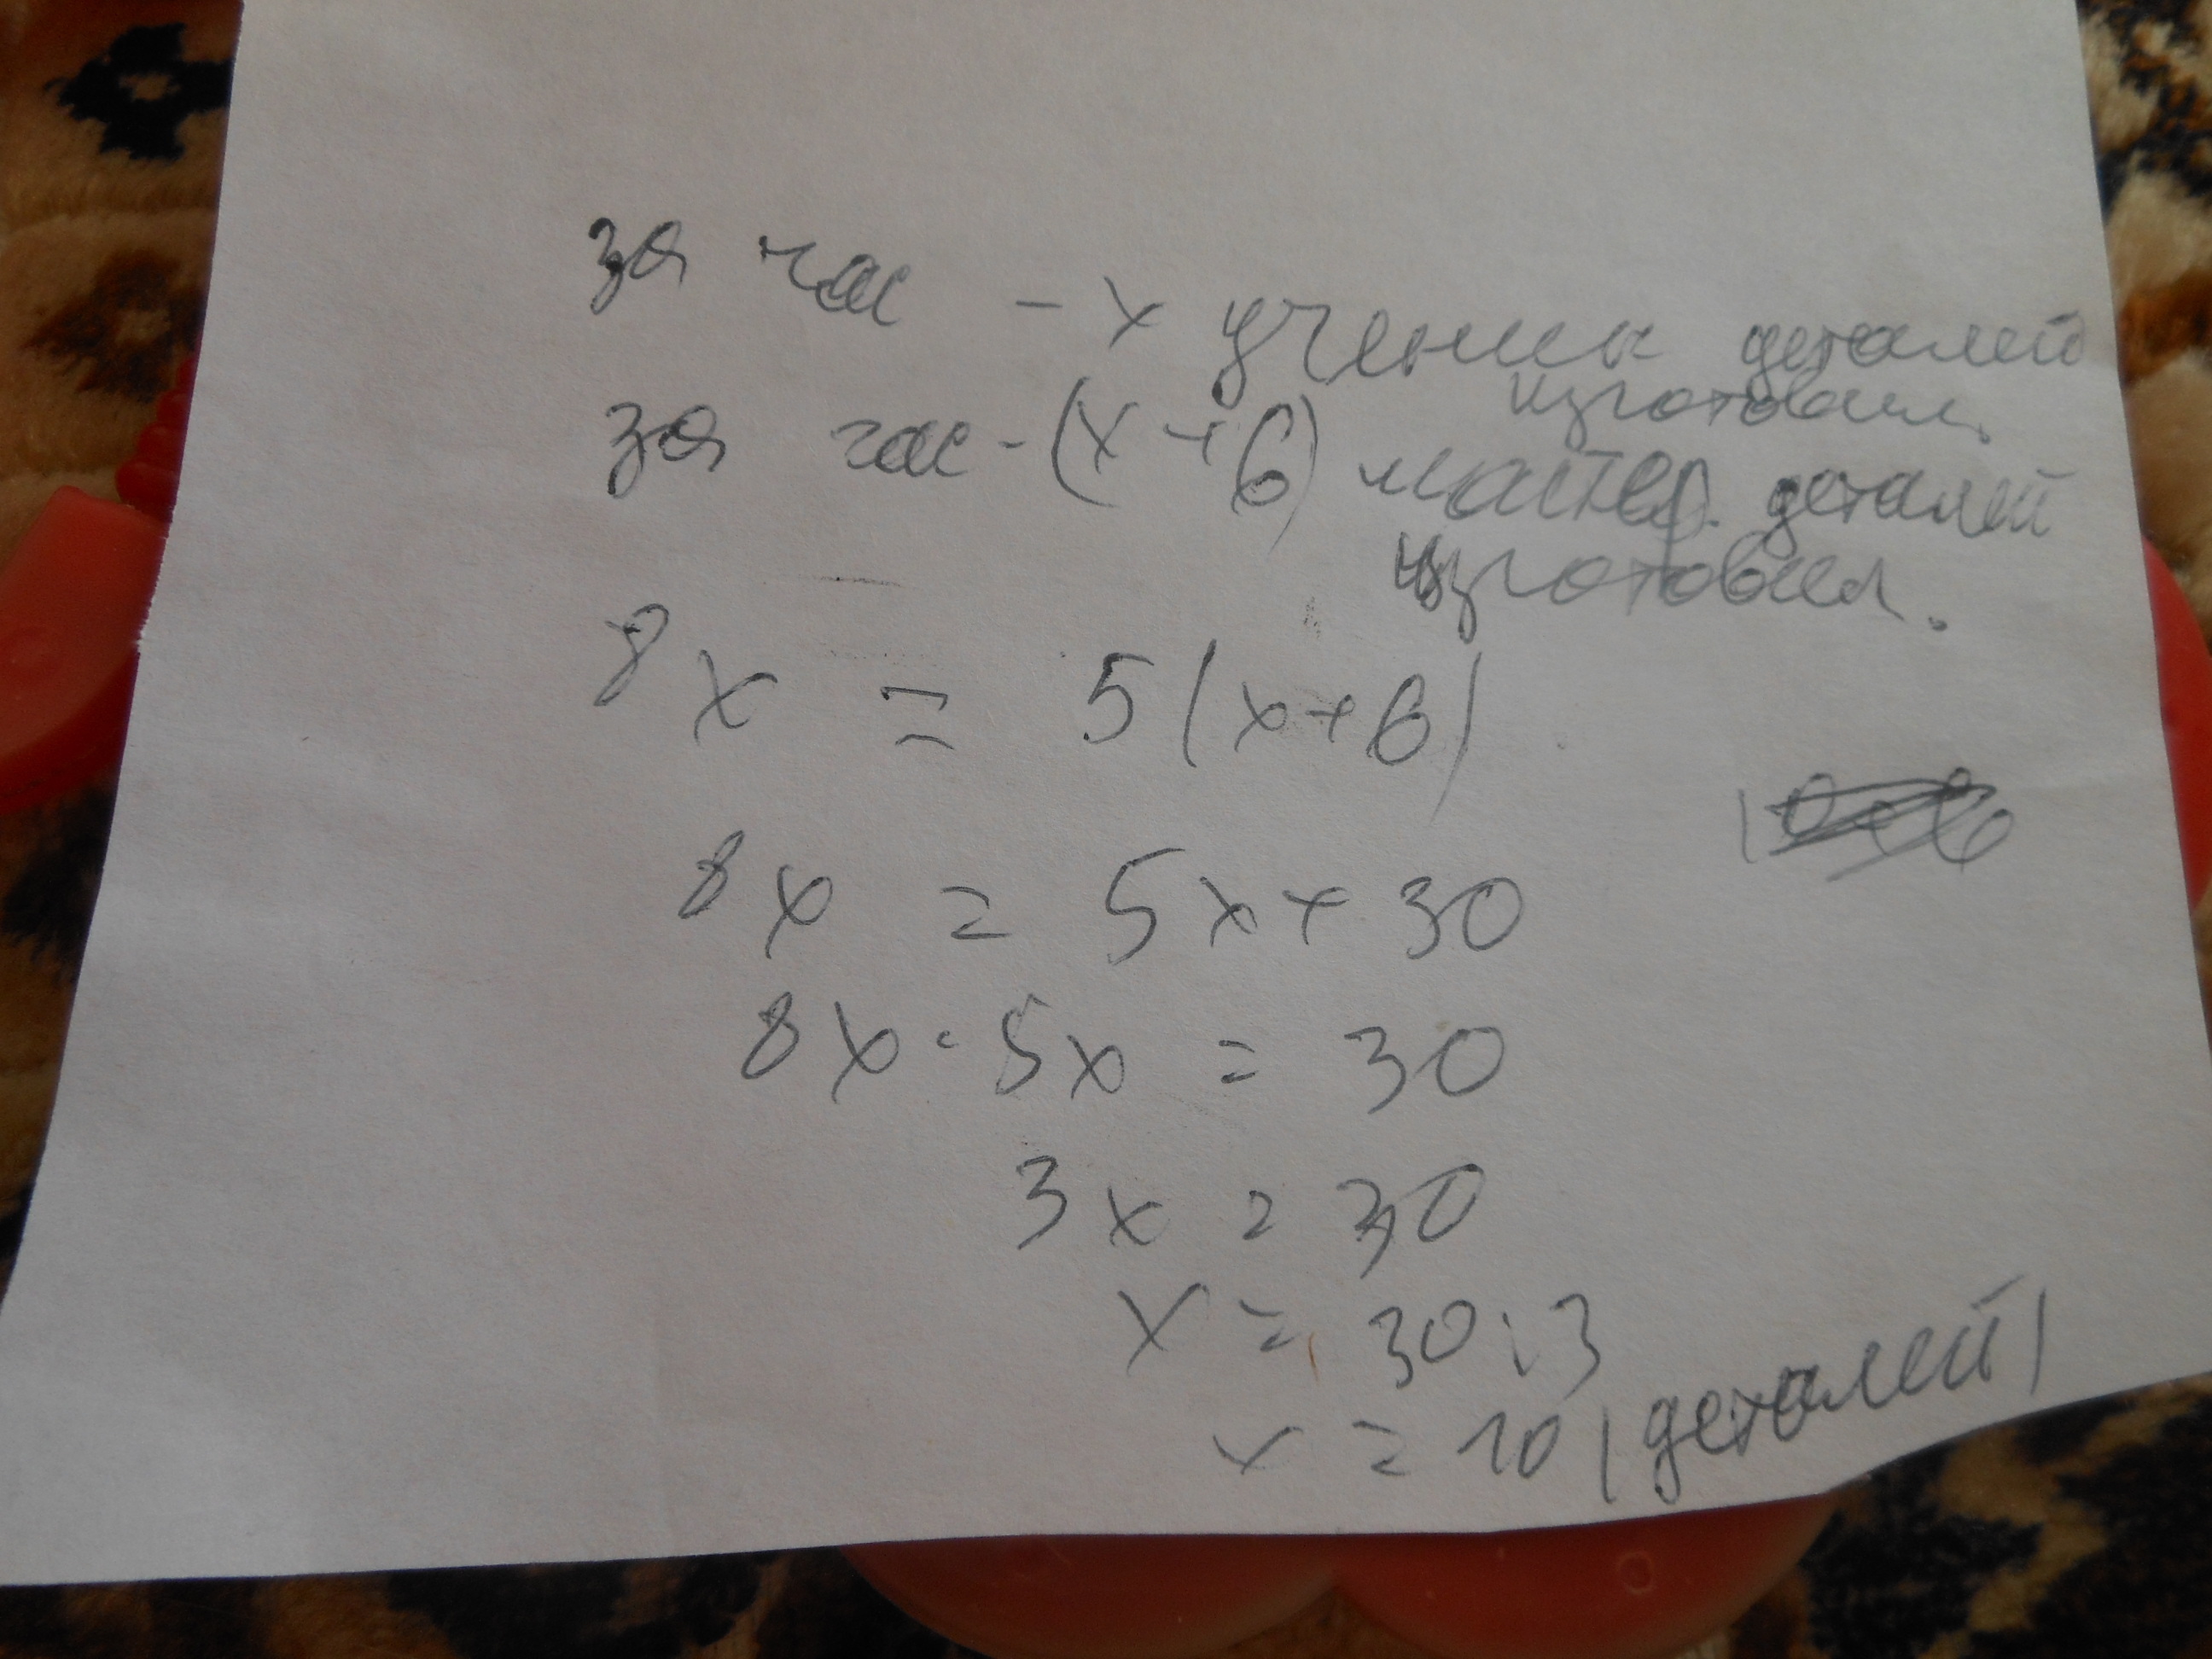 за час - x ученик деталей
изготовил.
за час - (x + 6) мастер деталей
изготовил.
8x = 5(x+6)
8x = 5x+30
8x - 5x = 30
3x = 30
x = 30:3
x = 10 (деталей)